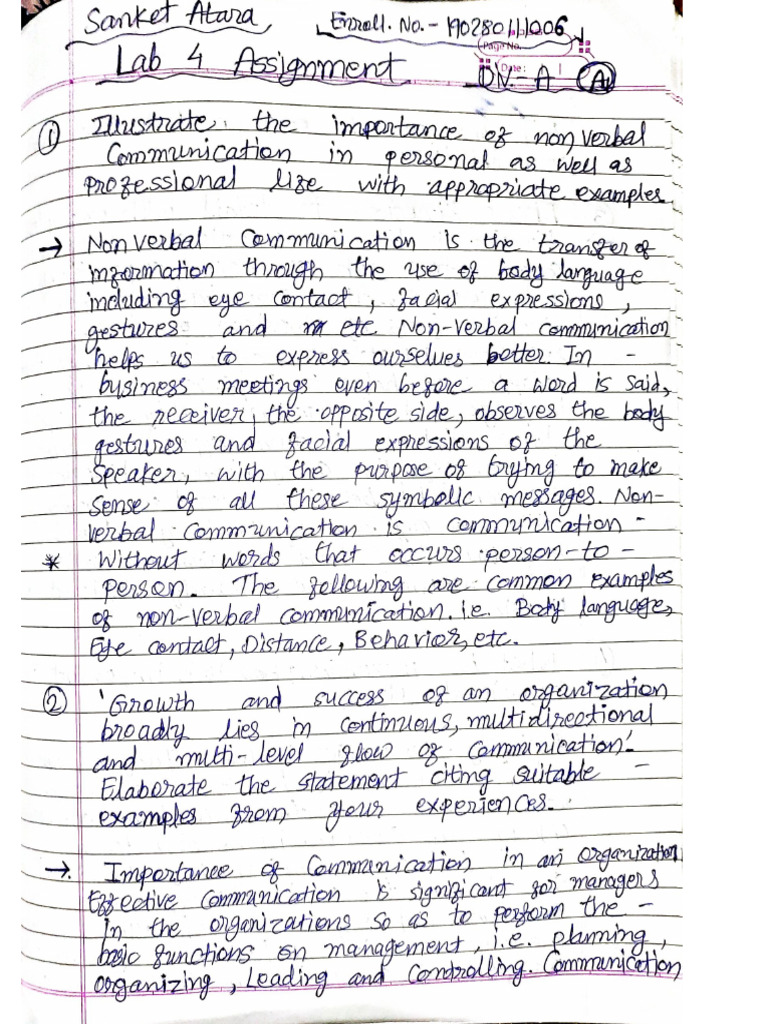 Sanket Atara, Enroll. No. - 190280111006
Page No.
Lab 4 Assignment DIV. - A
Date :
① Illustrate the importance of non verbal
Communication in personal as well as
professional life with appropriate examples
→ Non verbal Communication is the transfer of
information through the use of body language
including eye contact, facial expressions,
gestures and etc Non-verbal communication
helps us to express ourselves better. In -
business meetings even before a word is said,
the receiver, the opposite side, observes the body
gestures and facial expressions of the
speaker, with the purpose of trying to make
sense of all these symbolic messages. Non-
verbal communication is communication -
* Without words that occurs person-to-
person. The following are common examples
of non-verbal communication. i.e. Body language,
Eye contact, Distance, Behavior, etc.
② 'Growth and success of an organization
broadly lies in continuous, multidirectional
and multi-level flow of communication.'
Elaborate the statement citing suitable -
examples from your experiences.
→. Importance of Communication in an Organization
Effective communication is significant for managers
in the organizations so as to perform the -
basic functions on management, i.e. planning,
organizing, Leading and Controlling. Communication